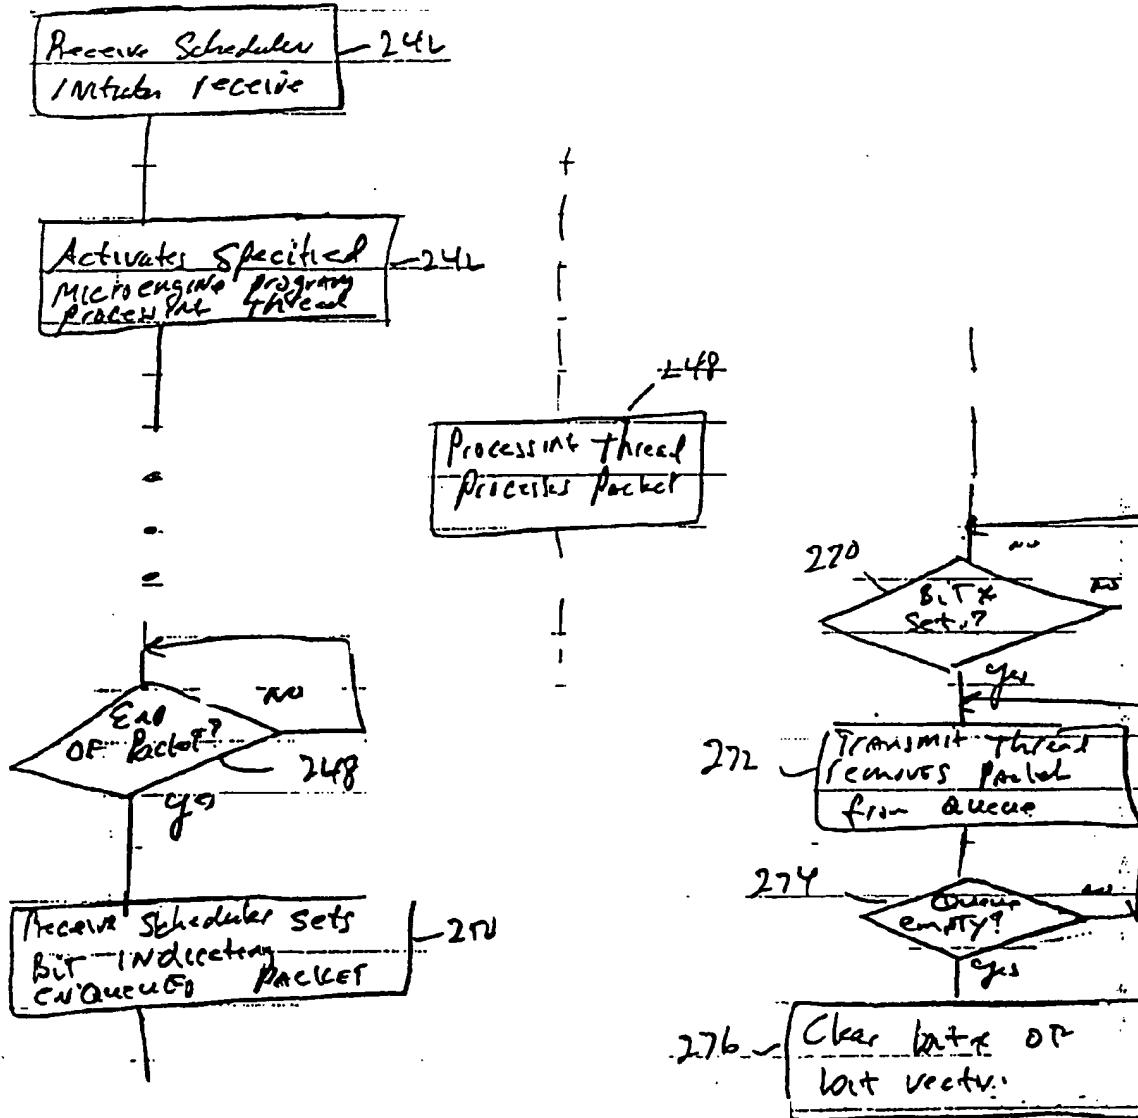 Receive Scheduler
Initiates receive
242
Activates Specified
Microengine program
processing thread
242
248
Processing thread
Processes Packet
End
OF Packet?
No
248
yes
Receive Scheduler sets
Bit indicating
ENQUEUED PACKET
250
270
Bit x
Set?
no
no
yes
272
Transmit Thread
removes Packet
from Queue
274
Queue
empty?
no
yes
276
Clear bit x OF
bit vector